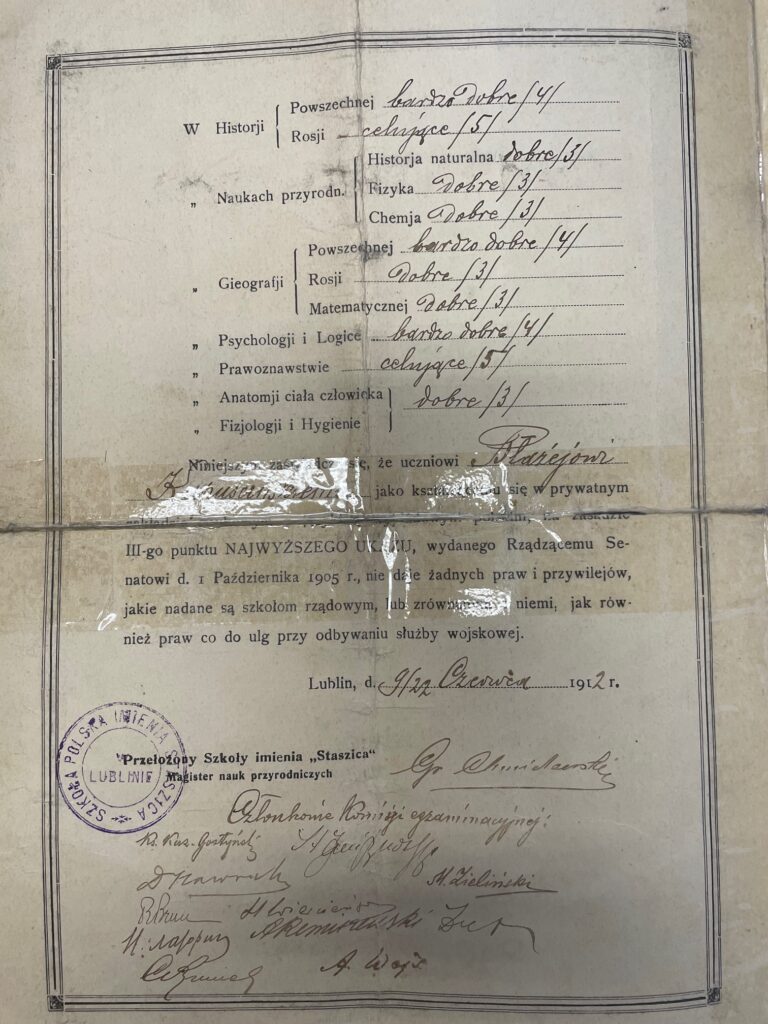 W Historji Powszechnej bardzo dobre /4/
Rosji celujące /5/
„ Naukach przyrodn. Historja naturalna dobre /3/
Fizyka dobre /3/
Chemja dobre /3/
„ Gieografji Powszechnej bardzo dobre /4/
Rosji dobre /3/
Matematycznej dobre /3/
„ Psychologji i Logice bardzo dobre /4/
„ Prawoznawstwie celujące /5/
„ Anatomji ciała człowieka dobre /3/
„ Fizjologji i Hygienie
Niniejszym zaświadcza się, że uczniowi Błażejowi
jako kształcącemu się w prywatnym
na zasadzie
III-go punktu NAJWYŻSZEGO UKAZU, wydanego Rządzącemu Se-
natowi d. 1 Października 1905 r., nie daje żadnych praw i przywilejów,
jakie nadane są szkołom rządowym, lub zrównanym z niemi, jak rów-
nież praw co do ulg przy odbywaniu służby wojskowej.
Lublin, d. 9/22 Czerwca 1912 r.
SZKOŁA POLSKA IMIENIA STASZICA
W LUBLINIE
Przełożony Szkoły imienia „Staszica"
Magister nauk przyrodniczych
Członkowie Komisji egzaminacyjnej:
M. Zieliński